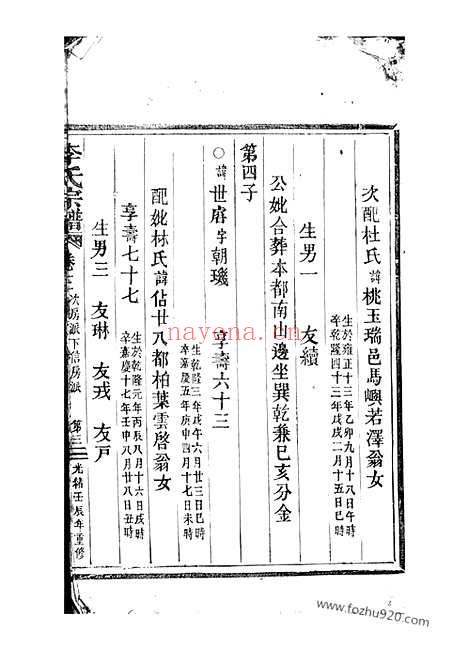 次配杜氏諱桃玉瑞邑馬嶼若澤翁女
生於雍正十三年乙卯九月十八日午時
卒乾隆四十三年戊戌二月十五日巳時
生男一 友續
公妣合葬本都南山邊坐巽乾兼巳亥分金
第四子
○諱世㾾字朝璣 享壽六十三
生乾隆三年戊午六月廿三日巳時
卒嘉慶五年庚申四月十七日未時
配妣林氏諱佔廿八都柏葉雲啓翁女
生於乾隆元年丙辰八月十六日戌時
卒嘉慶十七年壬申八月廿八日丑時
享壽七十七
生男三 友琳 友戎 友戶
李氏宗譜
次房派下信房派
光緒壬辰年重修
nayona.cn
www.fozhu920.com